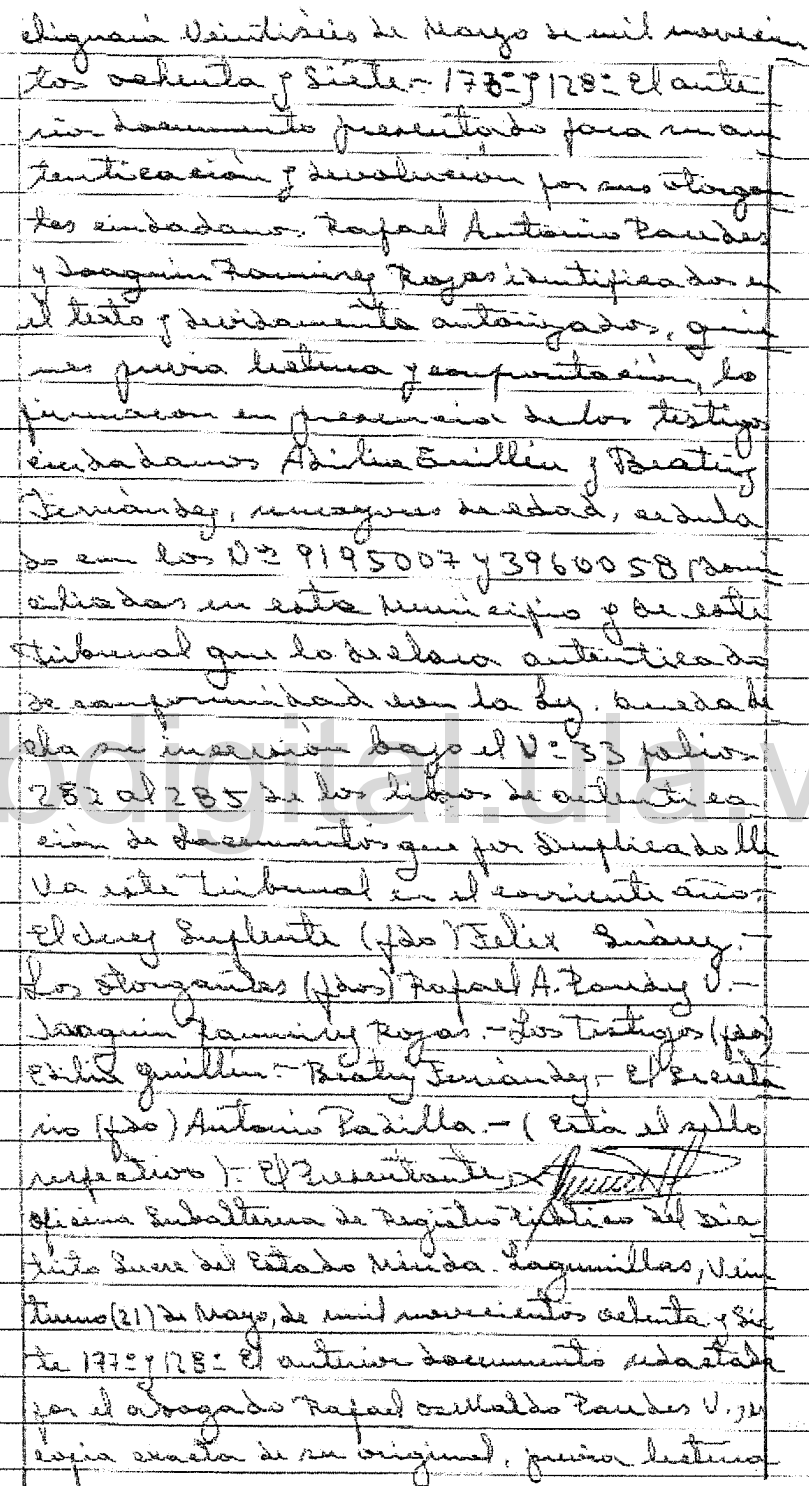 Chiguará Veintiseis de Mayo de mil novecien
tos ochenta y Siete.- 177º y 128º El ante
rior documento presentado para su au
tenticación y devolución por sus otorgan
tes ciudadanos Rafael Antonio Paredes
y Joaquin Ramirez Rojas identificados en
el texto y devidamente autorizados, quie
nes previa lectura y confrontación, lo
firmaron en presencia de los testigos
ciudadanos Edilia Guillén y Beatriz
Fernández, mayores de edad, cedula
do con los Nº 9195007 y 3960058, domi
ciliadas en este Municipio y de este
Tribunal que lo declara autenticado
de conformidad con la Ley. Queda he
cha su inserción bajo el Nº 33 folios
282 al 285 de los libros de autentica
ción de documentos que por Duplicado lle
va este Tribunal en el corriente año.-
El Juez Suplente (fdo) Felix Suárez.-
Los otorgantes (fdos) Rafael A. Paredes V.-
Joaquin Ramirez Rojas.- Los Testigos (fdo)
Edilia Guillén.- Beatriz Fernández.- El Secreta
rio (fdo) Antonio Padilla.- (Esta el sello
respectivo).- El Presentante,
Oficina Subalterna de Registro Público del Dis
trito Sucre del Estado Mérida. Lagunillas, Vein
tiuno (21) de Mayo, de mil novecientos ochenta y Sie
te 177º y 128º El anterior documento redactado
por el abogado Rafael Oswaldo Paredes V., es
copia exacta de su original, previa lectura
bdigital.ula.v